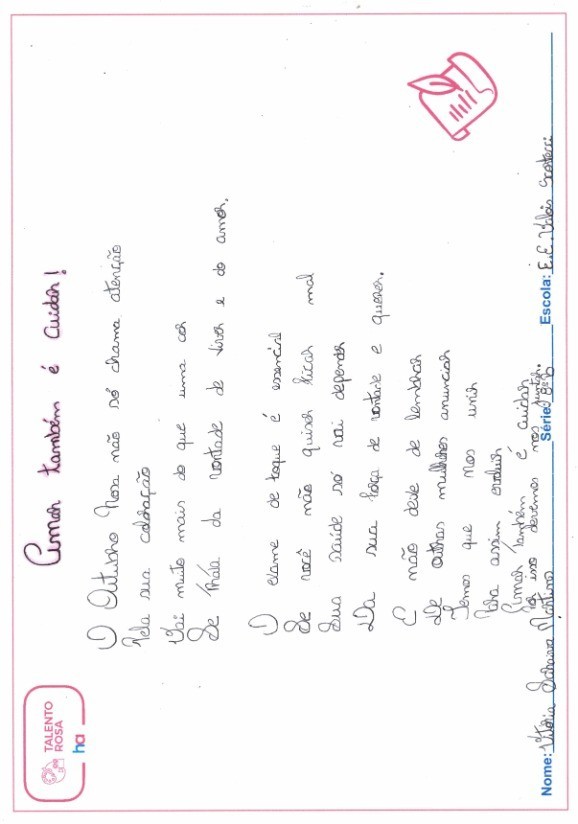 TALENTO
ROSA
ha
Amar também é cuidar!
O Outubro Rosa não só chama atenção
Pela sua coloração
Vai muito mais do que uma cor
Se trata da vontade de viver e do amor.
O exame de toque é essencial
Se você não quiser ficar mal
Sua saúde só vai depender
Da sua força de vontade e querer.
E não deixe de lembrar
De outras mulheres anunciar
Temos que nos unir
Para assim evoluir
Amar também é cuidar
Por isso devemos nos juntar.
Nome: Vitória Martins
Série: 8ºB
Escola: E.E. Valois Scortecci